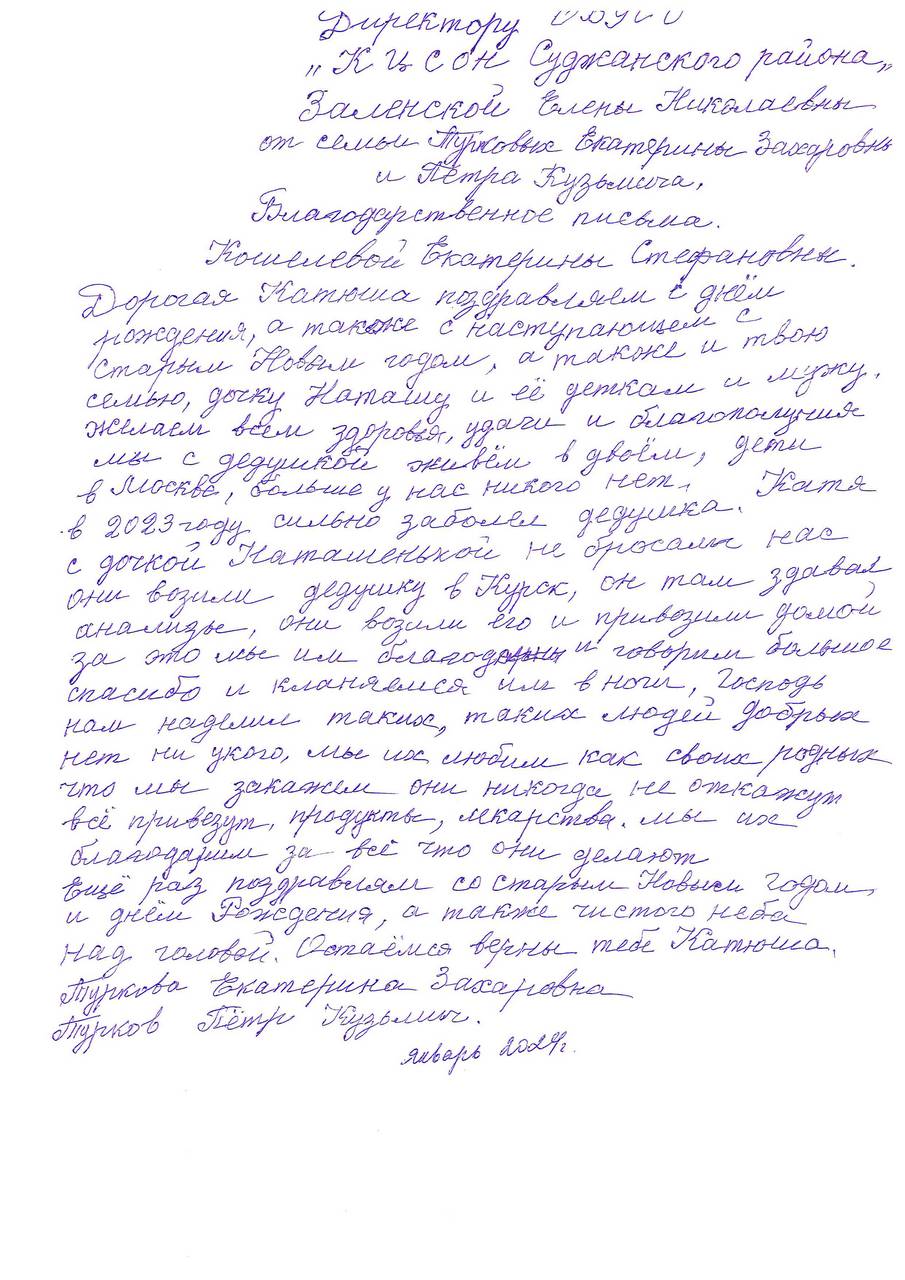 Директору
„КЦСОН Суджанского района„
Заленской Елены Николаевны
от семьи Турковых Екатерины Захаровны
и Пётра Кузьмича.
Благодарственное письма.
Кошелевой Екатерины Стефановны.
Дорогая Катюша поздравляем с днём
рождения, а также с наступающем с
старым Новым годом, а также и твою
семью, дочку Наташу и её деткам и мужу.
желаем всем здоровья, удачи и благополучия
мы с дедушкой живём в двоём, дети
в Москве, больше у нас никого нет.
в 2023 году сильно заболел дедушка. Катя
с дочкой Наташенькой не бросали нас
они возили дедушку в Курск, он там здавал
анализы, они возили его и привозили домой
за это мы им и говорим большое
спасибо и кланяемся им в ноги, Господь
нам наделил таких, таких людей добрых
нет ни укого, мы их любим как своих родных
что мы закажем они никогда не откажут
всё привезут, продукты, лекарства. мы их
благодарим за всё что они делают
Ещё раз поздравлям со старым Новым Годом,
и днём Рождения, а также чистого неба
над головой. Остаёмся верны тебе Катюша.
Туркова Екатерина Захаровна
Турков Пётр Кузьмич.
январь 2024г.